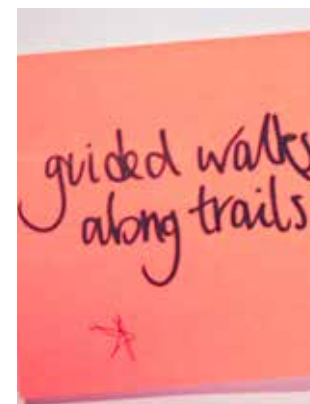 guided walks
along trails